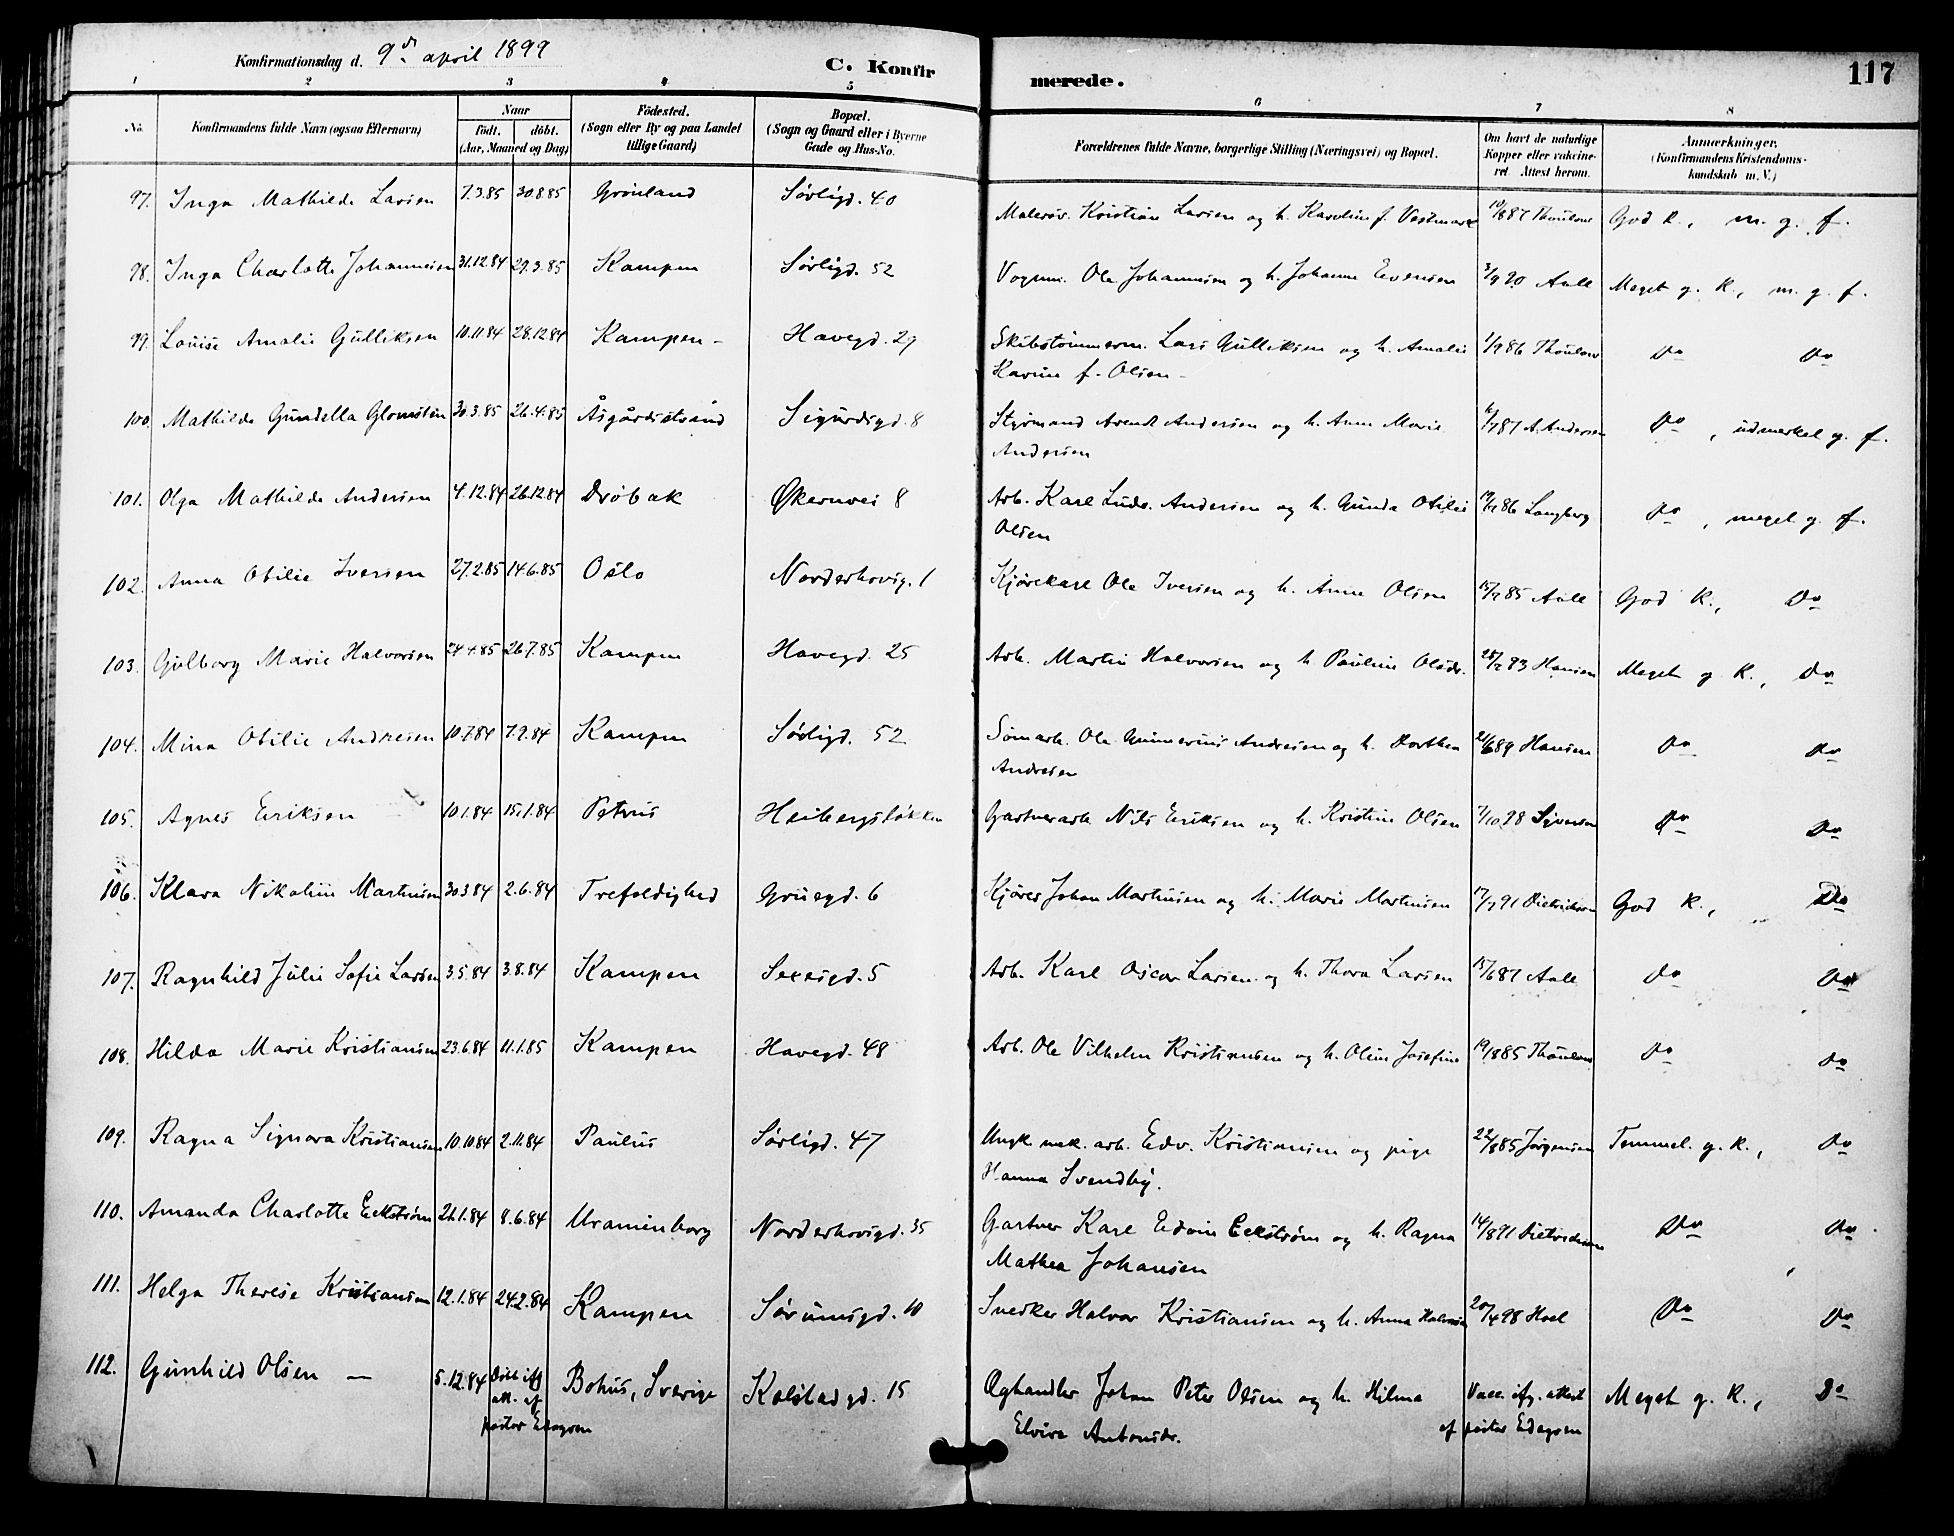 Konfirmationsdag d. 9de april 1899
C. Konfirmerede.
117
1 2 3 4 5 6 7 8
No. Konfirmandens fulde Navn (ogsaa Efternavn) Naar födt. döbt. (Aar, Maaned og Dag) Födested. (Sogn eller By og paa Landet tillige Gaard) Bopæl. (Sogn og Gaard eller i Byerne Gade og Hus-No. Forældrenes fulde Navne, borgerlige Stilling (Næringsvei) og Bopæl. Om havt de naturlige Kopper eller vakcineret. Attest herom. Anmærkninger. (Konfirmandens Kristendomskundskab m. V.)
97. Inga Mathilde Larsen 7.3.85 30.8.85 Grönland Sørligd. 40 Malersv. Kristian Larsen og h. Karoline f. Vestmark 10/8 87 Thaulow God K., m. g. f.
98. Inga Charlotte Johannesen 31.12.84 29.3.85 Kampen Sørligd. 52 Vognm. Ole Johannesen og h. Johanne Evensen 3/9 90 Aall Meget g. K., m. g. f.
99. Louise Amalie Gulliksen 10.11.84 28.12.84 Kampen - Havegd. 29 Skibstømmerm. Lars Gulliksen og h. Amalie 1/9 86 Thaulow Do Do
Karine f. Olsen -
100. Mathilde Gundella Glomstein 30.3.85 26.4.85 Åsgårdsstrand Sigurdsgd. 8 Styrmand Arendt Andersen og h. Anne Marie 87 A. Andersen Do, udmerket g. f.
Andersen
101. Olga Mathilde Andersen 4.12.84 26.12.84 Drøbak Økernvei 8 Arb. Karl Ludv. Andersen og h. Gunda Otilie 86 Langberg Do, meget g. f.
Olsen
102. Anna Otilie Iversen 27.2.85 14.6.85 Oslo Norderhovsg. 1 Kjørekarl Ole Iversen og h. Anne Olsen 15/9 85 Aall God K., Do
103. Gulborg Marie Halvorsen 24.4.85 26.7.85 Kampen Havegd. 25 Arb. Martin Halvorsen og h. Pauline Olsdr. 28/2 93 Hansen Meget g. K., Do
104. Mina Otilie Andresen 10.7.84 7.9.84 Kampen Sørligd. 52 Sømarb. Ole Gunnerius Andresen og h. Dorthea 21/6 89 Hansen Do Do
Andresen
105. Agnes Eriksen 10.1.84 15.1.84 Petrus Heibergsløkken Gartnerarb. Nils Eriksen og h. Kristine Olsen 7/10 98 Syverson Do Do
106. Klara Nikoline Martinsen 30.3.84 2.6.84 Trefoldighed Gruegd. 6 Kjører Johan Martinsen og h. Marie Martinsen 17/9 91 Dietrichson God K., Do
107. Ragnhild Julie Sofie Larsen 3.5.84 3.8.84 Kampen Sexesgd. 5 Arb. Karl Oscar Larsen og h. Thora Larsen 15/6 87 Aall Do Do
108. Hilda Marie Kristiansen 23.6.84 11.1.85 Kampen Havegd. 48 Arb. Ole Vilhelm Kristiansen og h. Oline Josefine 19/8 85 Thaulow Do Do
109. Ragna Signora Kristiansen 10.10.84 2.11.84 Paulus Sørligd. 47 Ungk. mek. arb. Edv. Kristiansen og pige 22/8 85 Jørgensen Temmel. g. K., Do
Hanna Svendby.
110. Amanda Charlotte Eckstrøm 26.1.84 8.6.84 Uranienborg Norderhovsgd. 35 Gartner Karl Edvin Eckstrøm og h. Ragna 14/8 91 Dietrichson Do Do
Mathea Johansen
111. Helga Therese Kristiansen 12.1.84 24.2.84 Kampen Sørumsgd. 10 Snedker Halvor Kristiansen og h. Anna Halvorsen 20/4 98 Hoel Do Do
112. Gunhild Olsen — 5.12.84 Döbt ifg. Bohus, Sverige Kolstadgd. 15 Øghandler Johan Peter Olsen og h. Hilma Vacc. ifg. attest Meget g. K., Do
att. af
pastor Edagson Elvira Antonsdr. af pastor Edagson